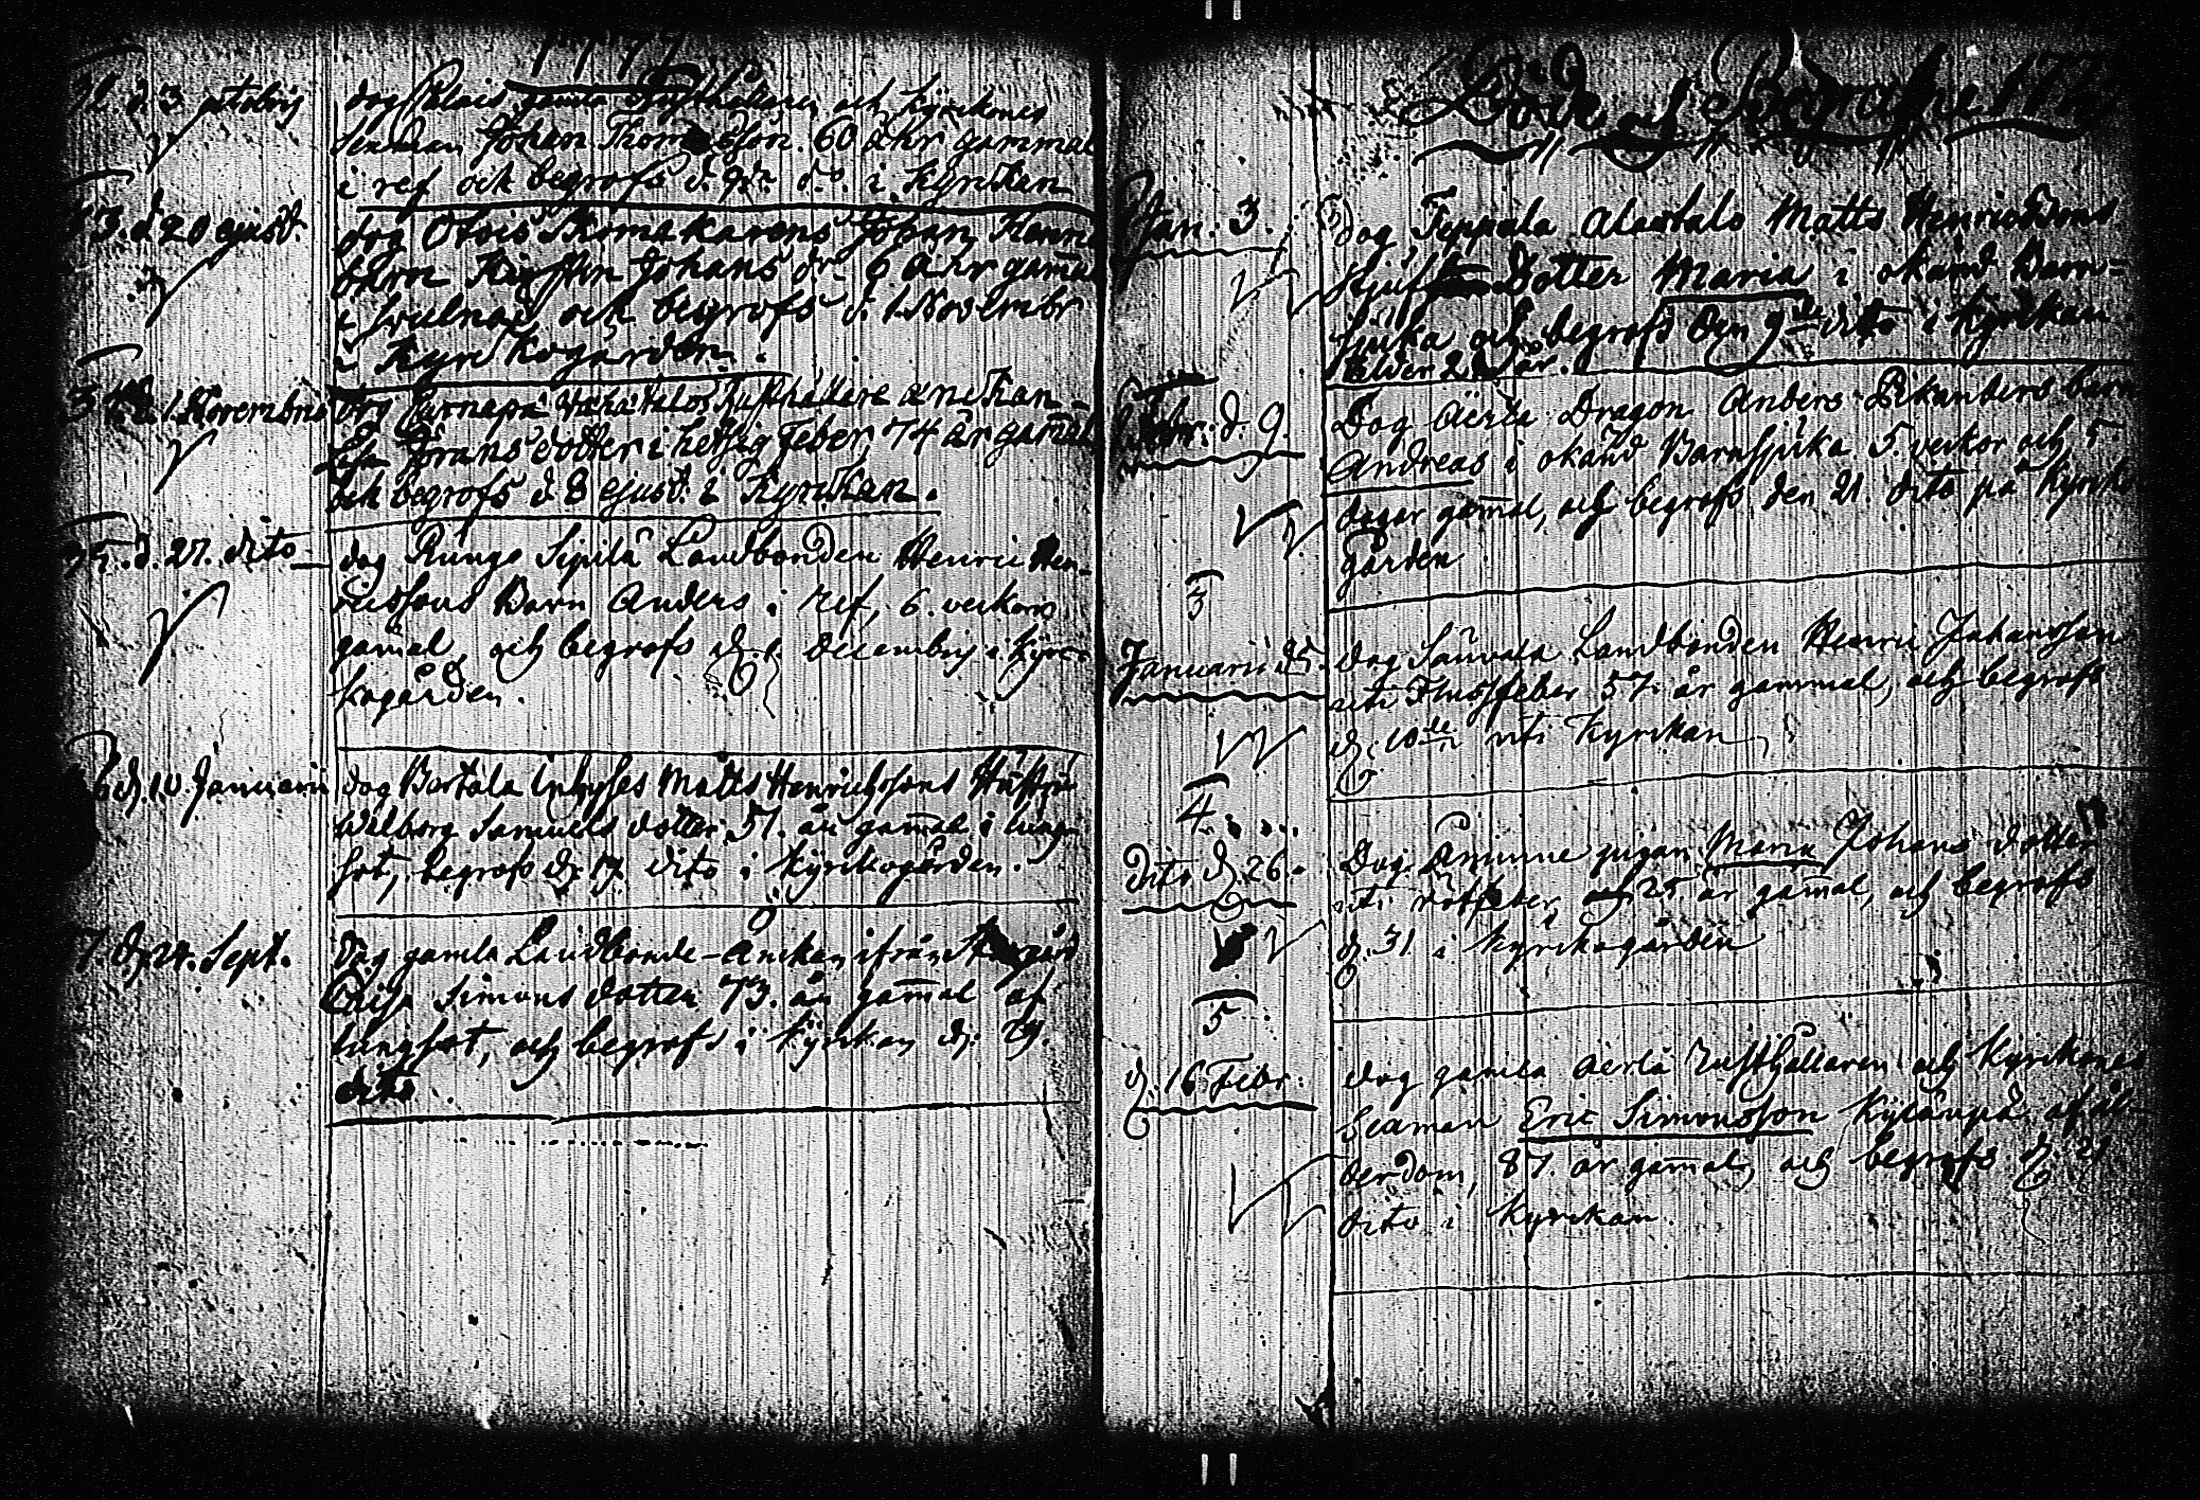 1777
32. d. 3 octobris
dog Palais gamla Rusthållaren och Kyrckones
sexman Johan Thomasson. 60 åhr gammal
i ref och begrofs d. 9de do. i Kyrckan
33. d. 20 ejusd.
dog Skomakarens Johan Henric
barn Kirstin Johans dr. 6 åhr gamal
i svulnad och begrofs d. 1 Novembr
i Kyrckogården.
d. 1. Novembris
dog Rusthållare änckan
Lisa Jörans dotter i hetsig Feber 74 år gamal
och begrofs d. 8 ejusd. i Kyrckan.
35. d. 27. dito
dog Rungo Sipilä Landbonden Henric Hen-
ricssons Barn Anders i ref, 6. veckors
gamal och begrofs d. 1 decembris i Kyrc-
kogården.
6 d. 10. Januarii
dog Bertala Inhyses Matts Henrichssons Hustru
Walborg Samuels dotter 51. år gamal i lung-
sot, begrofs d. 17 dito i Kyrckogården.
7. d. 24. Sept.
dog gamla Landbonde-Änckan ifrån
Lisa Simons dotter 73. år gamal af
lungsot, och begrofs i Kyrckan d. 29.
dito
Döde och Begrafne
Jan. 3.
dog Teppala Alastalo Matts Henricssons
Dotter Maria i okänd Barn-
sjuka och begrofs den 9de dito i Kyrckan
ålder 2 år.
Febr. d. 9.
Dog Äerla Dragon Anders Pikanders barn
Andreas i okänd Barnsjuka 5. veckor och 5
dagar gamal, och begrofs den 21. dito på Kyrcko
gården
3
Januarii d. 5.
dog Sauvala Landbonden Henric Johansson
uti Flussfeber 57. år gammal, och begrofs
d. 10de uti Kyrckan
4
Dito d. 26.
Dog Aminne pigan Maria Johans dotter
uti rötfeber, 25. år gamal, och begrofs
d. 31 i Kyrckogården
5
d. 16 Febr.
dog gamla Äerla Rusthållaren och Kyrckones
Sexman Eric Simonsson Kylänpä af ål-
derdom, 87. år gamal, och begrofs d. 21
dito i Kyrckan.